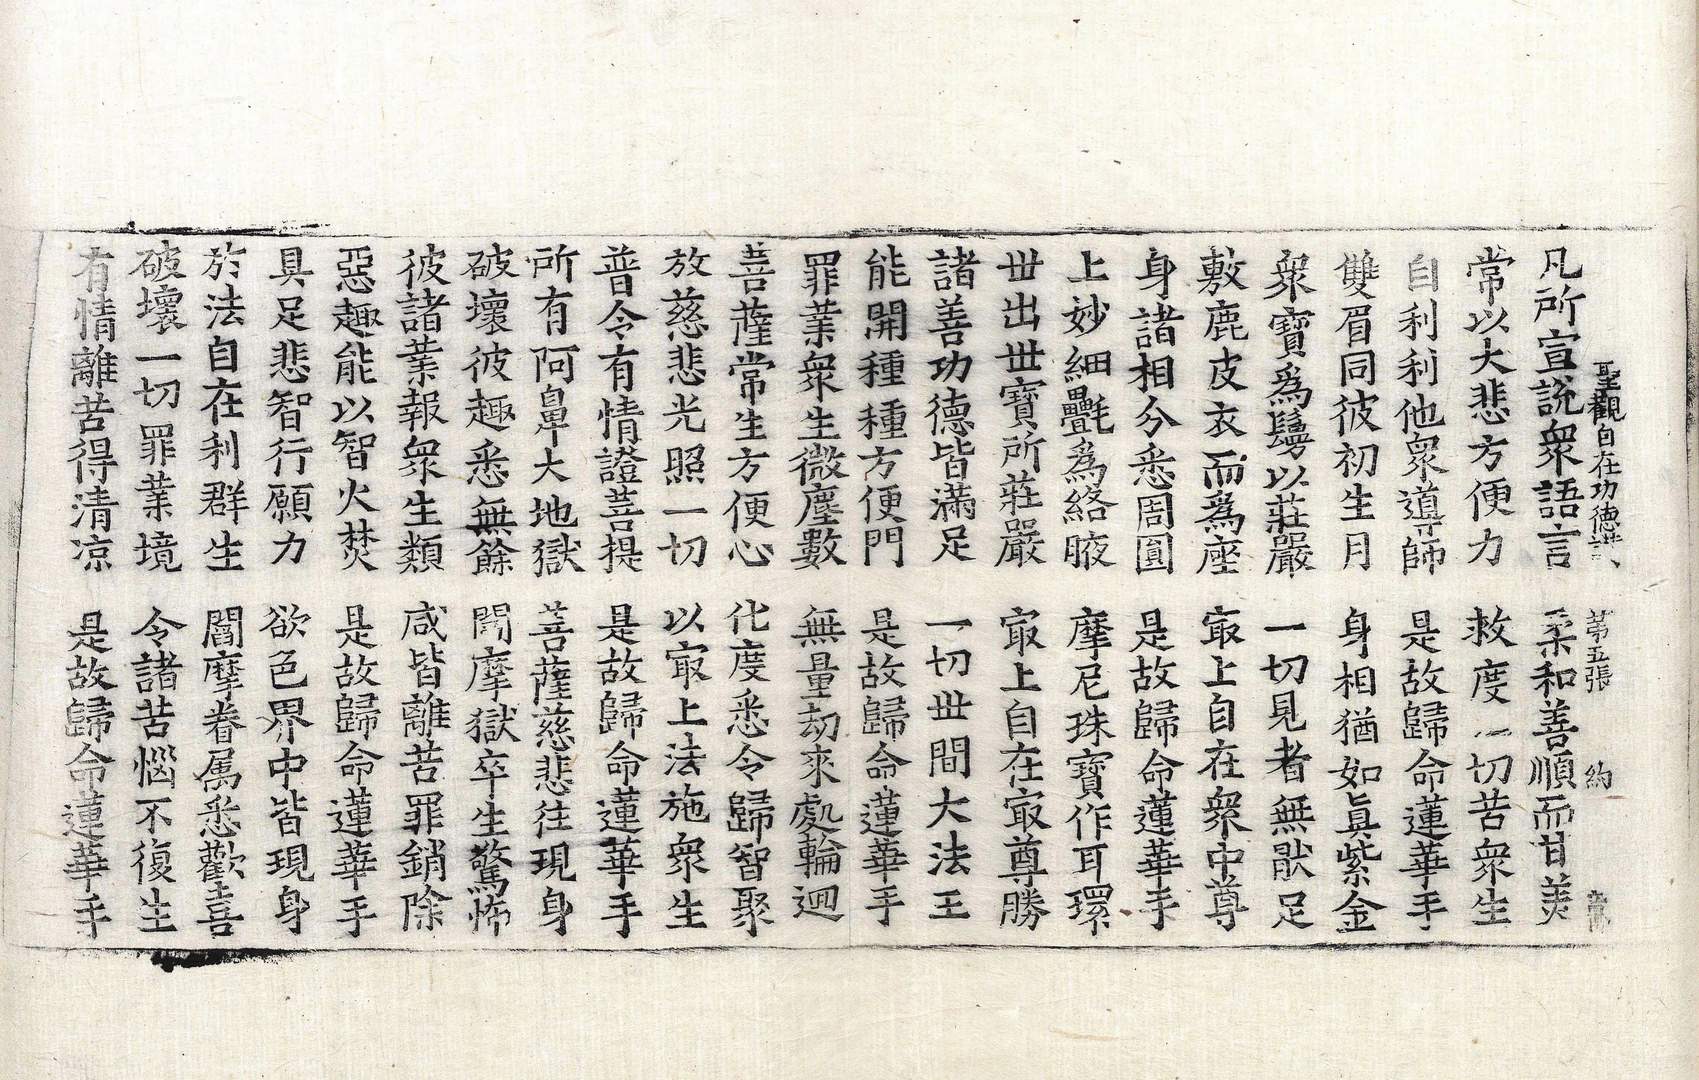 聖觀自在功德讃 第五張 約
凡所宣說衆語言 柔和善順而甘美
常以大悲方便力 救度一切苦衆生
自利利他衆導師 是故歸命蓮華手
雙眉同彼初生月 身相猶如眞紫金
衆寶爲鬘以莊嚴 一切見者無猒足
敷鹿皮衣而爲座 㝡上自在衆中尊
身諸相分悉周圓 是故歸命蓮華手
上妙細㲲爲絡腋 摩尼珠寶作耳環
世出世寶所莊嚴 㝡上自在㝡尊勝
諸善功德皆滿足 一切世間大法王
能開種種方便門 是故歸命蓮華手
罪業衆生微塵數 無量劫來處輪迴
菩薩常生方便心 化度悉令歸智聚
放慈悲光照一切 以㝡上法施衆生
普令有情證菩提 是故歸命蓮華手
所有阿鼻大地獄 菩薩慈悲往現身
破壞彼趣悉無餘 閻摩獄卒生驚怖
彼諸業報衆生類 咸皆離苦罪銷除
惡趣能以智火焚 是故歸命蓮華手
具足悲智行願力 欲色界中皆現身
於法自在利群生 閻摩眷属悉歡喜
破壞一切罪業境 令諸苦惱不復生
有情離苦得清凉 是故歸命蓮華手